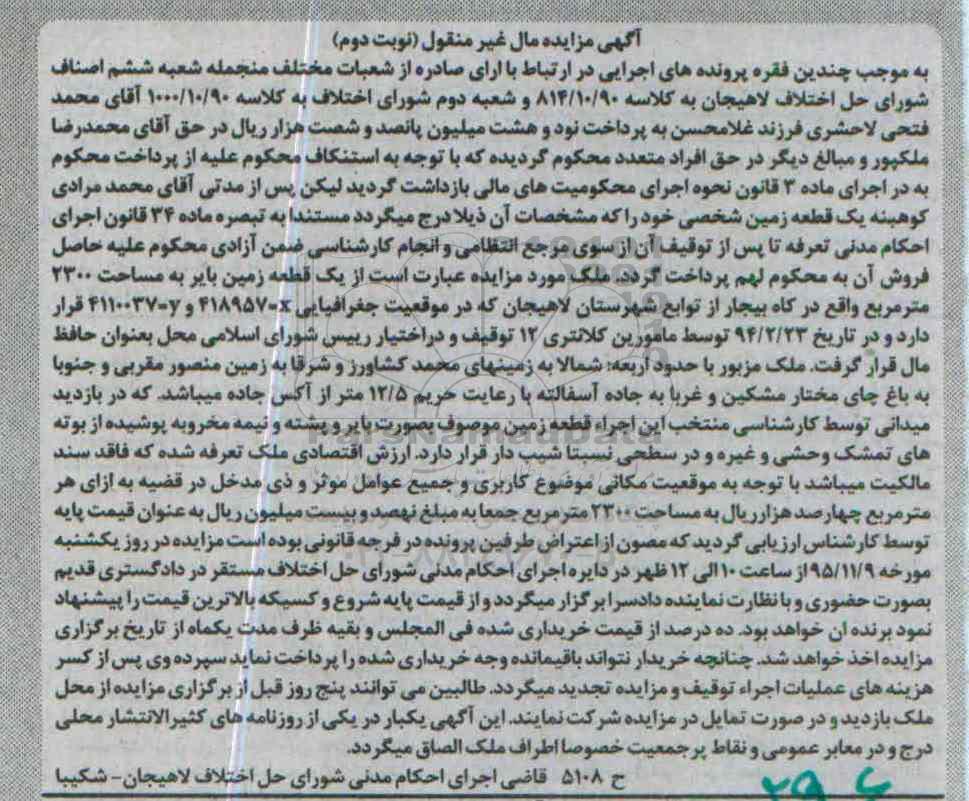 آگهی مزایده مال غیر منقول (نوبت دوم)
به موجب چندین فقره پرونده های اجرایی در ارتباط با ارای صادره از شعبات مختلف منجمله شعبه ششم اصناف
شورای حل اختلاف لاهیجان به کلاسه ۸۱۴/۱۰/۹۰ و شعبه دوم شورای اختلاف به کلاسه ۱۰۰۰/۱۰/۹۰ آقای محمد
فتحی لاحشری فرزند غلامحسن به پرداخت نود و هشت میلیون پانصد و شصت هزار ریال در حق آقای محمدرضا
ملکپور و مبالغ دیگر در حق افراد متعدد محکوم گردیده که با توجه به استنکاف محکوم علیه از پرداخت محکوم
به در اجرای ماده ۳ قانون نحوه اجرای محکومیت های مالی بازداشت گردید لیکن پس از مدتی آقای محمد مرادی
کوهبنه یک قطعه زمین شخصی خود را که مشخصات آن ذیلا درج میگردد مستندا به تبصره ماده ۳۴ قانون اجرای
احکام مدنی تعرفه تا پس از توقیف آن از سوی مرجع انتظامی و انجام کارشناسی ضمن آزادی محکوم علیه حاصل
فروش آن به محکوم لهم پرداخت گردد. ملک مورد مزایده عبارت است از یک قطعه زمین بایر به مساحت ۲۳۰۰
مترمربع واقع در کاه بیجار از توابع شهرستان لاهیجان که در موقعیت جغرافیایی x=۴۱۸۹۵۷ و y=۴۱۱۰۰۳۷ قرار
دارد و در تاریخ ۹۴/۲/۲۳ توسط مامورین کلانتری ۱۲ توقیف و دراختیار رییس شورای اسلامی محل بعنوان حافظ
مال قرار گرفت. ملک مزبور با حدود آربعه: شمالا به زمینهای محمد کشاورز و شرقا به زمین منصور مقربی و جنوبا
به باغ چای مختار مشکین و غربا به جاده آسفالته با رعایت حریم ۱۲/۵ متر از آکس جاده میباشد. که در بازدید
میدانی توسط کارشناسی منتخب این اجراء قطعه زمین موصوف بصورت بایر و پشته و نیمه مخروبه پوشیده از بوته
های تمشک وحشی و غیره و در سطحی نسبتا شیب دار قرار دارد. ارزش اقتصادی ملک تعرفه شده که فاقد سند
مالکیت میباشد با توجه به موقعیت مکانی موضوع کاربری و جمیع عوامل موثر و ذی مدخل در قضیه به ازای هر
مترمربع چهارصد هزار ریال به مساحت ۲۳۰۰ مترمربع جمعا به مبلغ نهصد و بیست میلیون ریال به عنوان قیمت پایه
توسط کارشناس ارزیابی گردید که مصون از اعتراض طرفین پرونده در فرجه قانونی بوده است مزایده در روز یکشنبه
مورخه ۹۵/۱۱/۹ از ساعت ۱۰ الی ۱۲ ظهر در دایره اجرای احکام مدنی شورای حل اختلاف مستقر در دادگستری قدیم
بصورت حضوری و با نظارت نماینده دادسرا برگزار میگردد و از قیمت پایه شروع و کسیکه بالاترین قیمت را پیشنهاد
نمود برنده ان خواهد بود. ده درصد از قیمت خریداری شده فی المجلس و بقیه ظرف مدت یکماه از تاریخ برگزاری
مزایده اخذ خواهد شد. چنانچه خریدار نتواند باقیمانده وجه خریداری شده را پرداخت نماید سپرده وی پس از کسر
هزینه های عملیات اجراء توقیف و مزایده تجدید میگردد. طالبین می توانند پنج روز قبل از برگزاری مزایده از محل
ملک بازدید و در صورت تمایل در مزایده شرکت نمایند. این آگهی یکبار در یکی از روزنامه های کثیرالانتشار محلی
درج و در معابر عمومی و نقاط پرجمعیت خصوصا اطراف ملک الصاق میگردد.
ح ۵۱۰۸ قاضی اجرای احکام مدنی شورای حل اختلاف لاهیجان- شکیبا
ParsNamadData